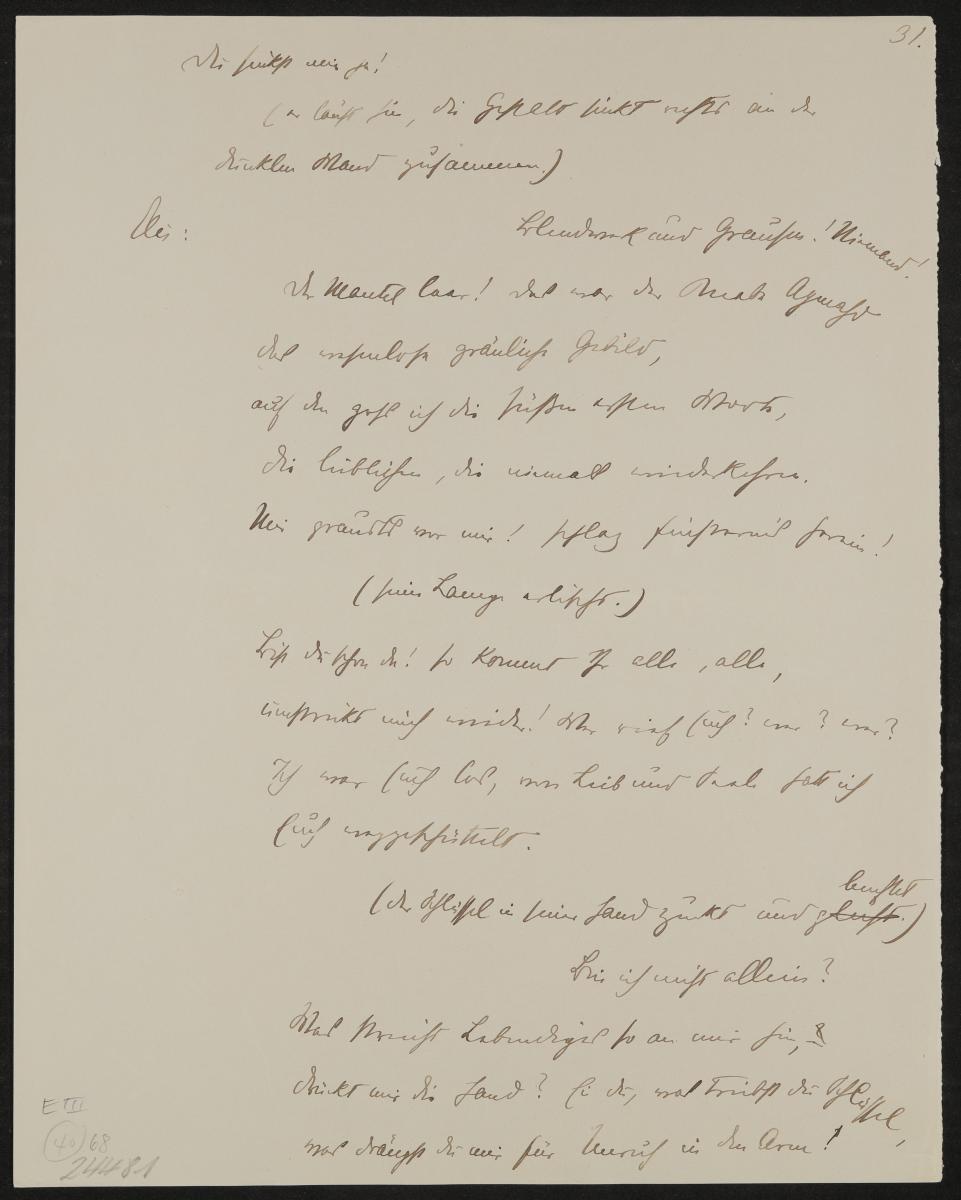 31.
Du sinkst mir ja!
(er läuft hin, die Gestalt sinkt rechts an der
dunklen Wand zusammen.)
Elis: Blendwerk und Grausen! Niemand!
Der Mantel leer! das war der Knabe Agmahd
das wesenlose gräuliche Gebild,
auf den goss ich die süßen ersten Worte,
die lieblichen, die niemals wiederkehren.
Mir graust's vor mir! schlag Finsternis herein!
(seine Lampe erlischt.)
Bist du schon da! so kommt Ihr alle, alle,
umstrickt mich wieder! Wer rief Euch? wer? wer?
Ich war Euch los, von Leib und Seele hatt ich
Euch weggeschüttelt.
leuchtet
(der Schlüssel in seiner Hand zuckt und .)
Bin ich nicht allein?
Was streift Lebendiges so an mir hin,
drückt mir die Hand? Ei du, was treibst du Schlüssel,
was drängst du mir für Unruh in den Arm!
E III
40 68
24481